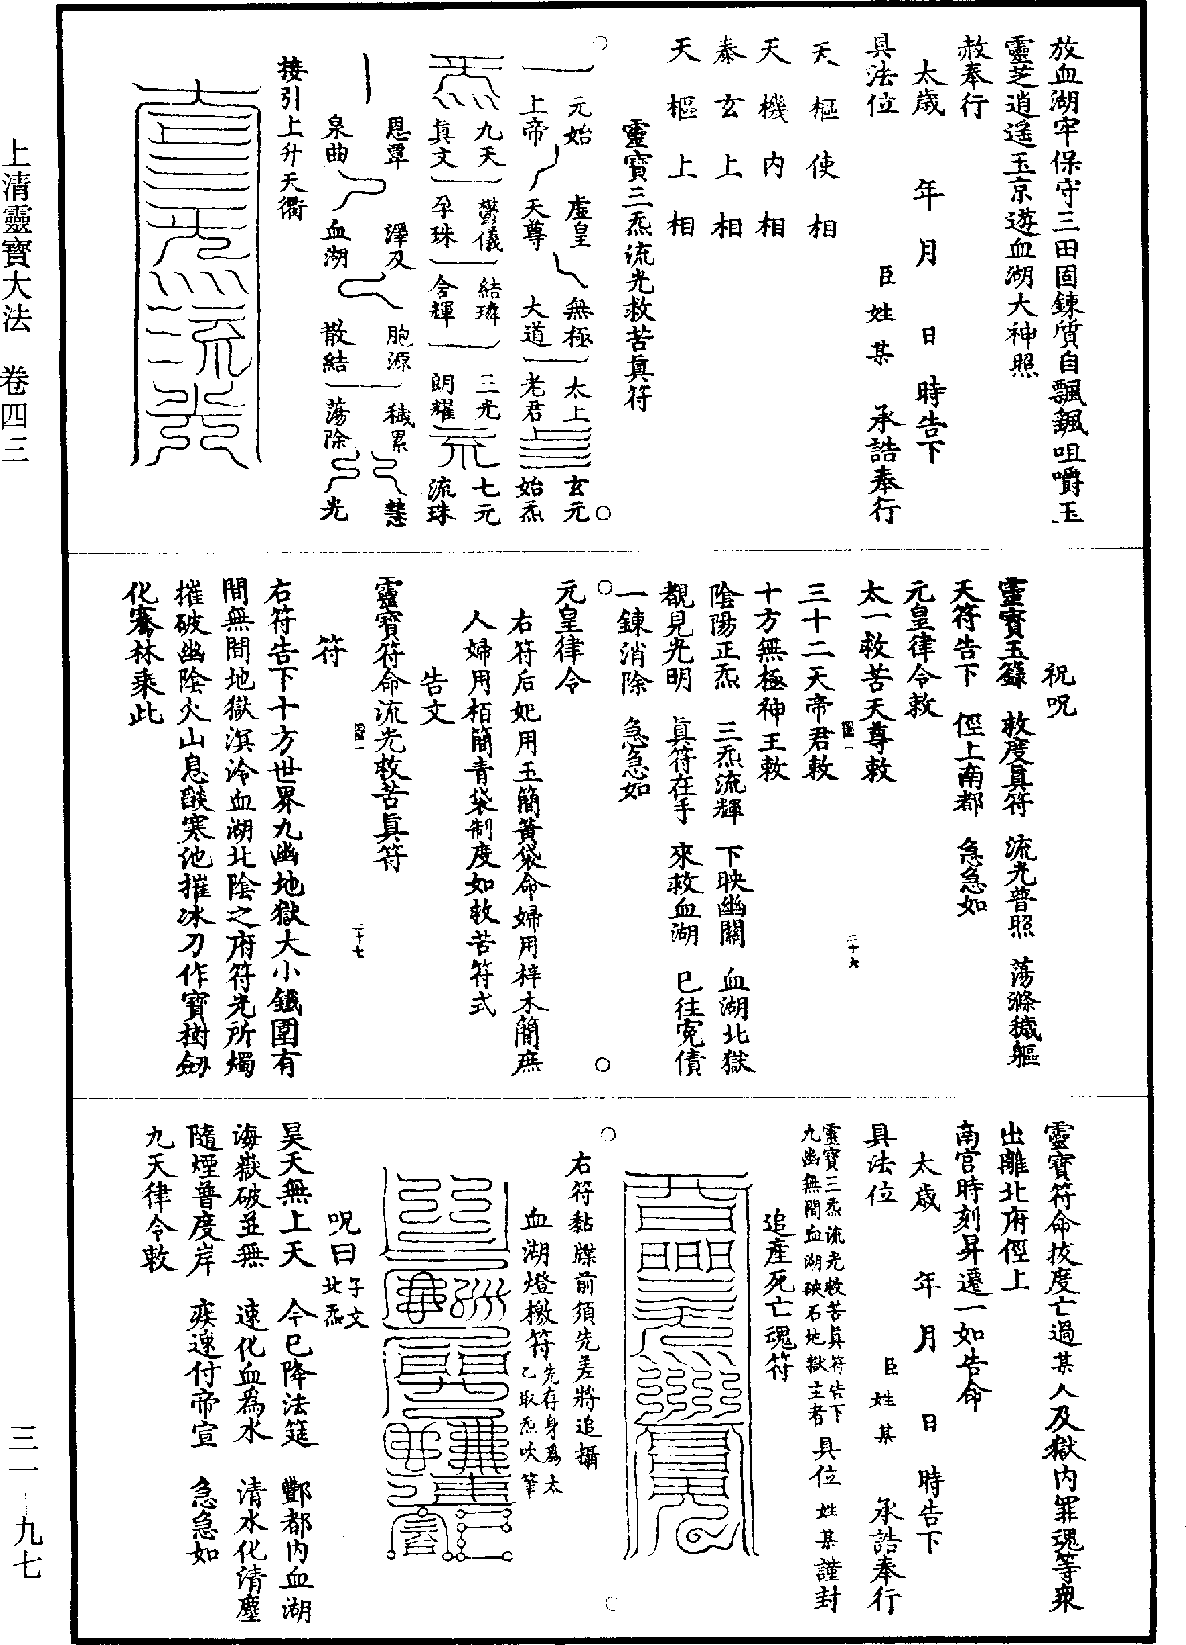 上清靈寶大法　卷四三
三一—九七
放血湖牢保守三田固鍊質自飄飆咀嚼玉
靈芝逍遙玉京遊血湖大神照
赦奉行
太歲　年　月　日　時告下
具法位　臣　姓　某　承誥奉行
天樞使相
天機內相
泰玄上相
天樞上相
靈寶三炁流光救苦真符
元始　虛皇　無極　太上　玄元
上帝　天尊　大道　老君　始炁
九天　鬱儀　結璘　三光　七元
真文　孕珠　含輝　朗耀　流珠
恩覃　澤及　胞源　穢累　慧
泉曲　血湖　散結　蕩除　光
接引上升天衢
祝呪
靈寶玉籙　救度真符　流光普照　蕩滌穢軀
天符告下　徑上南都　急急如
元皇律令敕
太一救苦天尊敕
三十二天帝君敕
十方無極神王敕
陰陽正炁　三炁流輝　下映幽關　血湖北獄
覩見光明　真符在手　來救血湖　已往寃債
一鍊消除　急急如
元皇律令
右符后妃用玉簡黃袋命婦用梓木簡庶
人婦用栢簡青袋制度如救苦符式
告文
靈寶符命流光救苦真符
符
右符告下十方世界九幽地獄大小鐵圍有
間無間地獄溟泠血湖北陰之府符光所燭
摧破幽陰火山息燄寒池摧冰刀作寶樹劒
化騫林乘此
靈寶符命拔度亡過某人及獄內罪魂等衆
出離北府徑上
南宮時刻昇遷一如告命
太歲　年　月　日　時告下
具法位　臣　姓　某　承誥奉行
靈寶三炁流光救苦真符告下
九幽無間血湖硤石地獄主者　具位　姓某謹封
追產死亡魂符
右符黏牒前須先差將追攝
血湖燈檄符先存身為太乙取炁吹筆
呪曰子文北炁
昊天無上天　今已降法筵　酆都內血湖
海嶽破並無　速化血為水　清水化清塵
隨煙普度岸　疾速付帝宣　急急如
九天律令敕